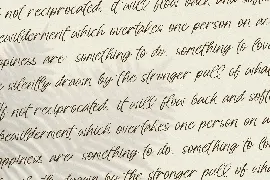 not reciprocated, it will flow back and soft
bewilderment which overtakes one person on an
appiness are: something to do, something to love
silently drawn by the stronger pull of what
If not reciprocated, it will flow back and softe
bewilderment which overtakes one person on a
appiness are: something to do, something to lov
drawn by the stronger pull of wha